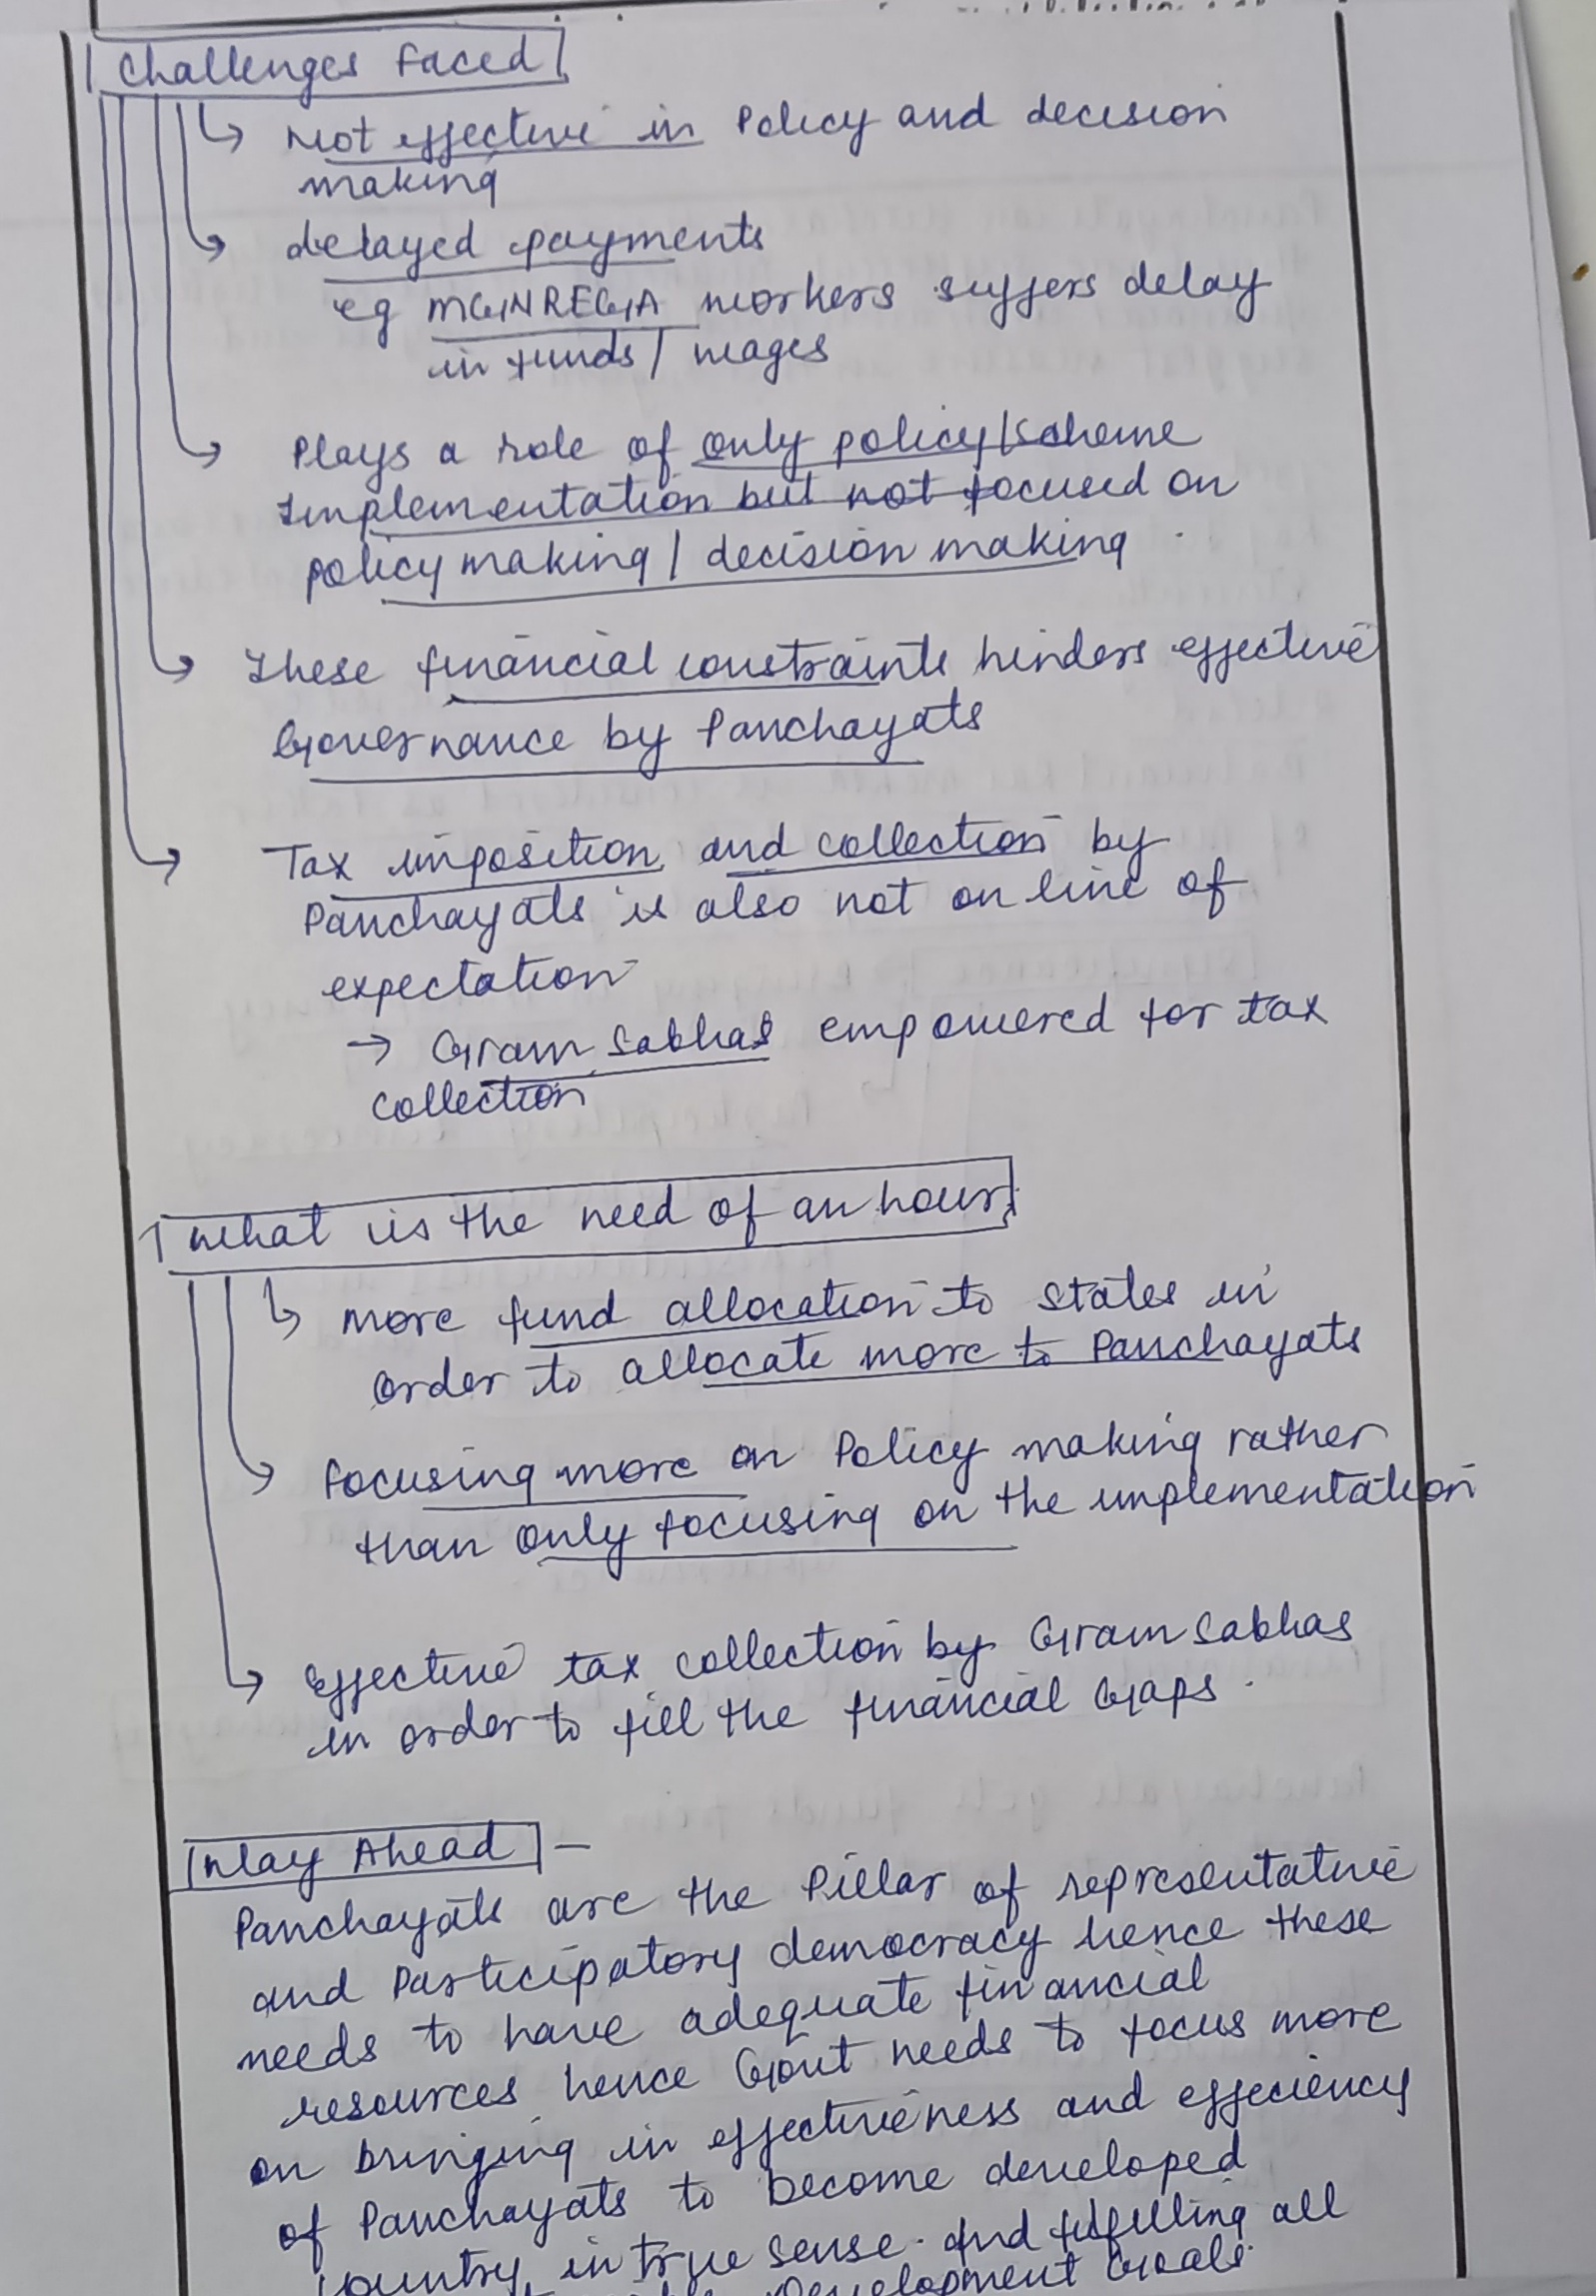 Challenges Faced
Not effective in Policy and decision
making
delayed payments
eg MGNREGA workers suffers delay
in funds / wages
Plays a role of only policy/scheme
Implementation but not focused on
policy making / decision making
These financial constraints hinders effective
Governance by Panchayats
Tax imposition and collection by
Panchayats is also not on line of
expectation
→ Gram Sabhas empowered for tax
collection
What is the need of an hour
More fund allocation to states in
order to allocate more to Panchayats
Focusing more on Policy making rather
than only focusing on the implementation
Effective tax collection by Gram Sabhas
in order to fill the financial Gaps.
Way Ahead —
Panchayats are the Pillar of representative
and Participatory democracy hence these
needs to have adequate financial
resources hence Govt needs to focus more
on bringing in effectiveness and effeciency
of Panchayats to become developed
country in true sense. And fulfilling all
Development Goals.